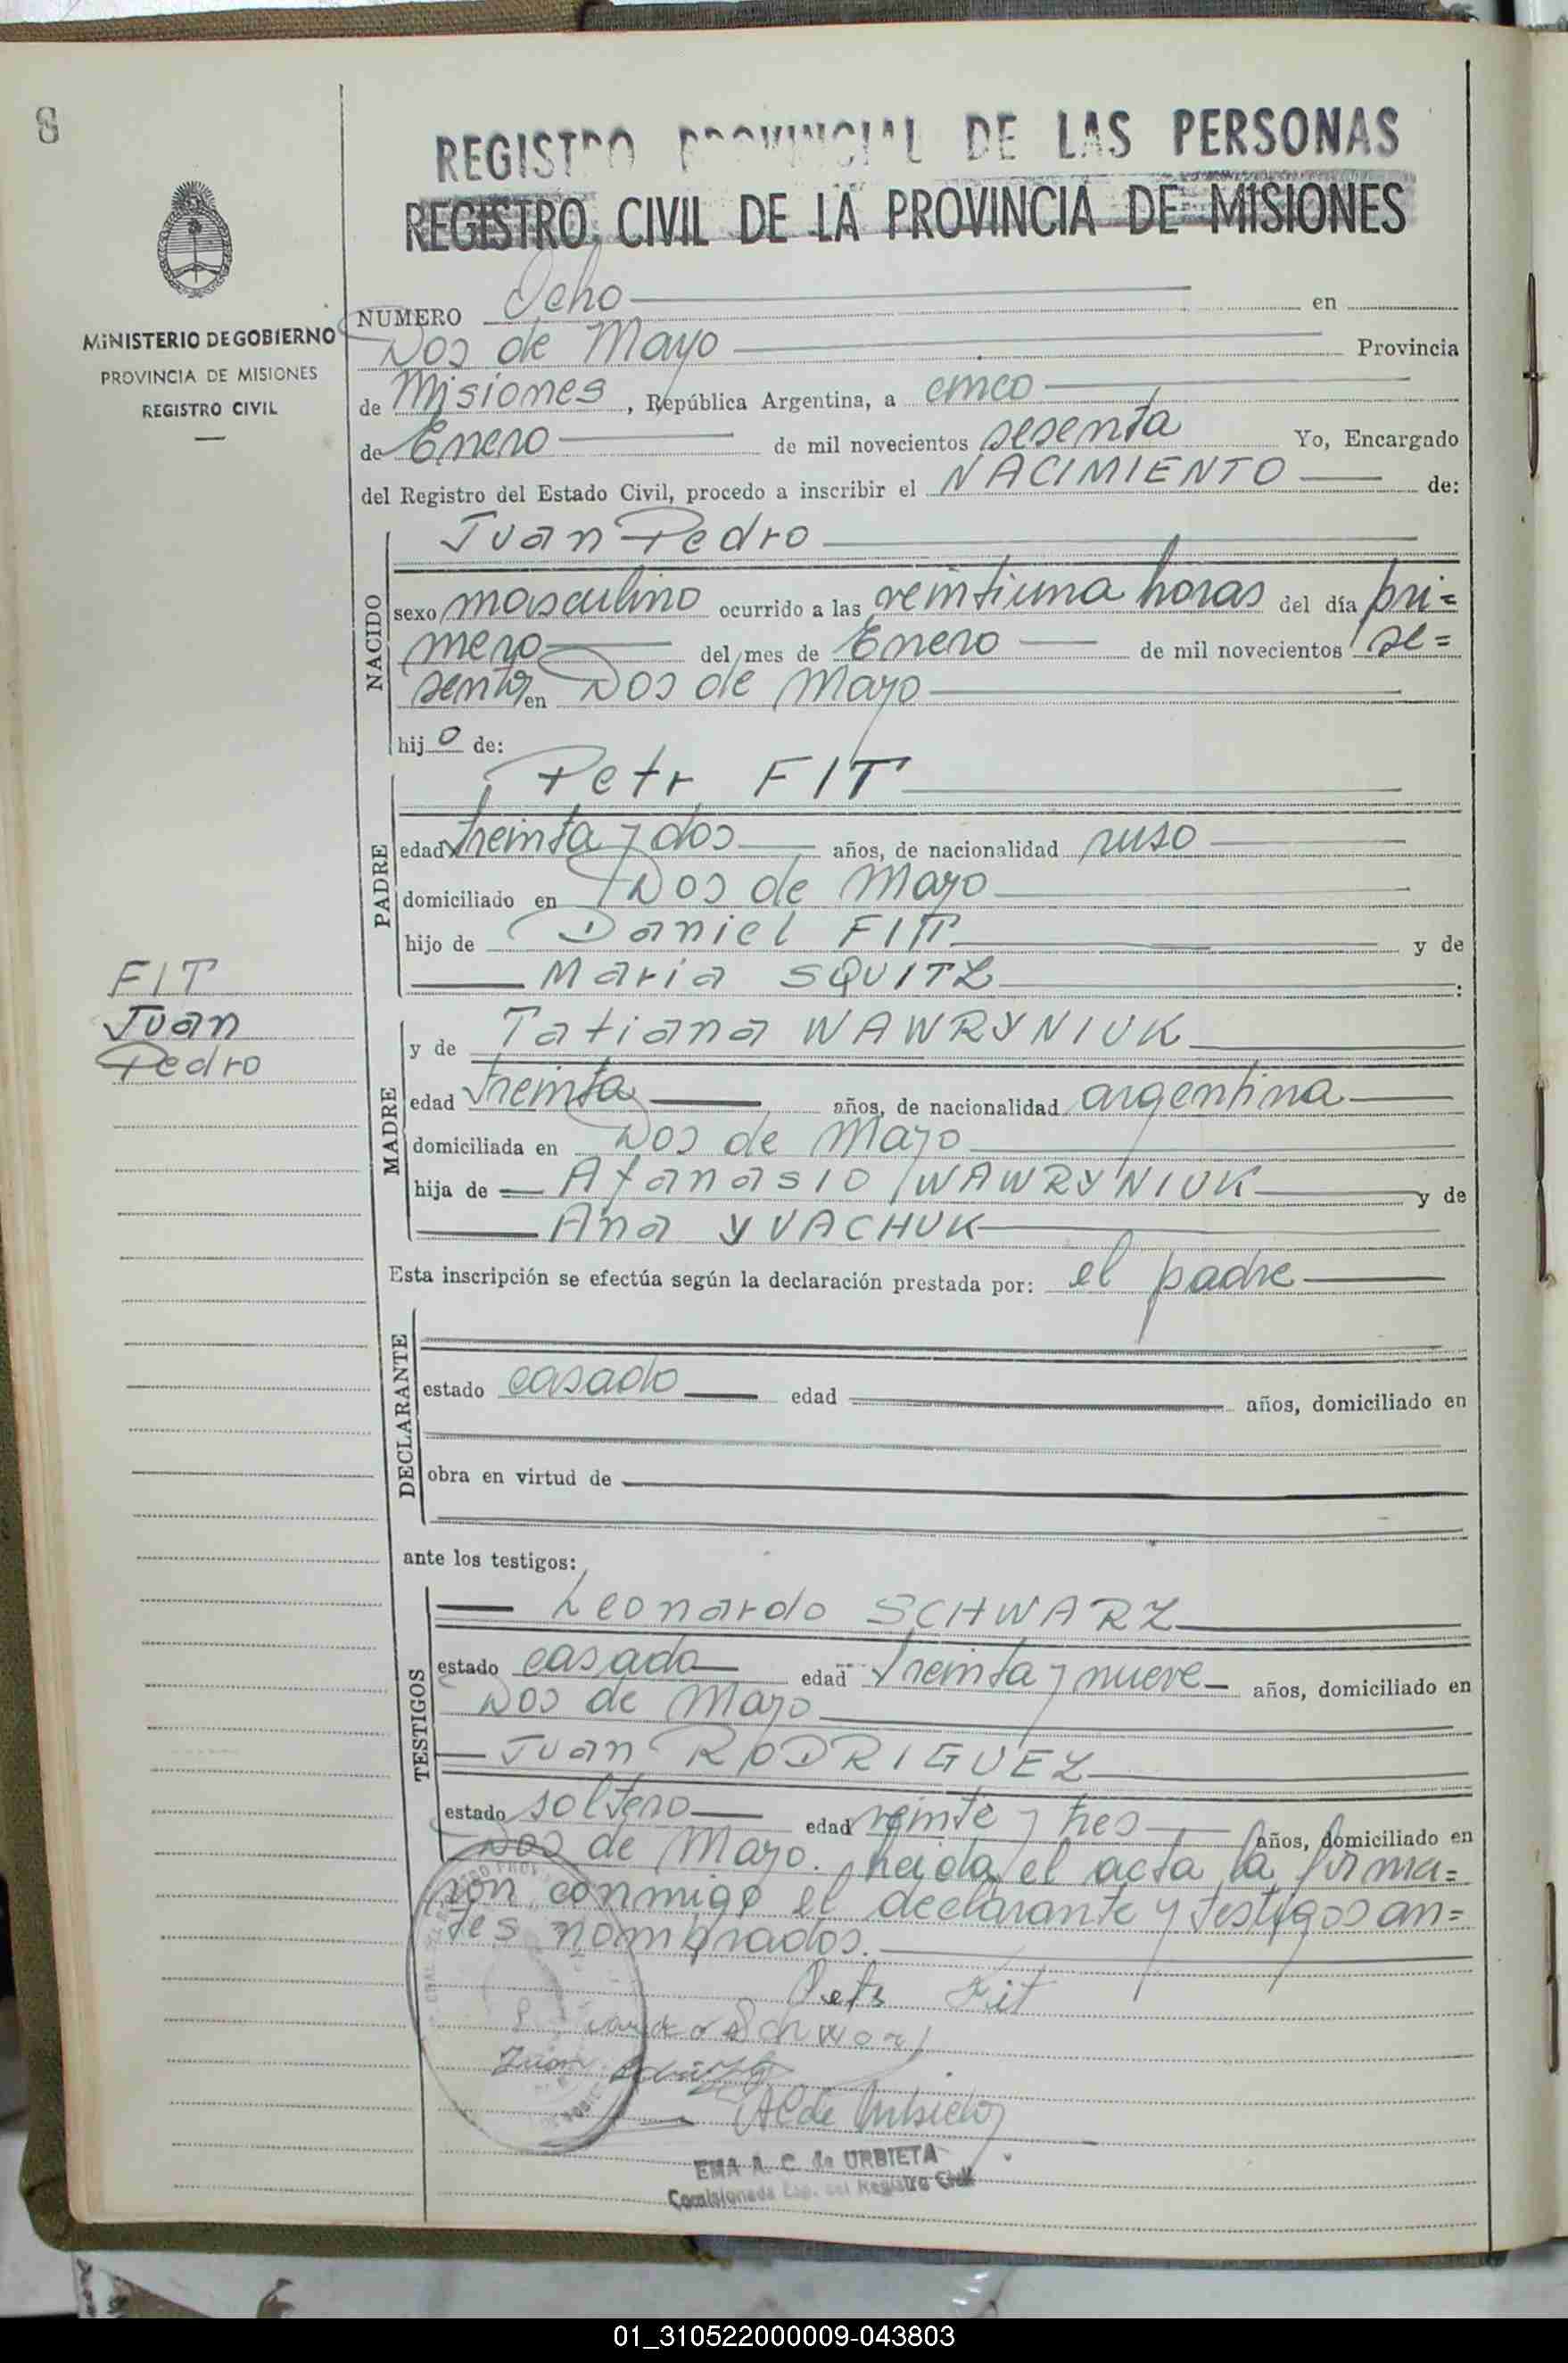 8
REGISTRO PROVINCIAL DE LAS PERSONAS
REGISTRO CIVIL DE LA PROVINCIA DE MISIONES
MINISTERIO DE GOBIERNO
PROVINCIA DE MISIONES
REGISTRO CIVIL
NUMERO Ocho en
Dos de Mayo Provincia
de Misiones, República Argentina, a cinco
de Enero de mil novecientos sesenta Yo, Encargado
del Registro del Estado Civil, procedo a inscribir el NACIMIENTO de:
NACIDO
Juan Pedro
sexo masculino ocurrido a las veintiuna horas del día pri=
mero del mes de Enero de mil novecientos se=
senta en Dos de Mayo
hijo de:
PADRE
Petr FIT
edad treinta y dos años, de nacionalidad ruso
domiciliado en Dos de Mayo
hijo de Daniel FIT y de
Maria SQUITZ:
FIT
Juan
Pedro
MADRE
y de Tatiana WAWRYNIUK
edad treinta años, de nacionalidad argentina
domiciliada en Dos de Mayo
hija de Afanasio WAWRYNIUK y de
Ana YVACHUK
Esta inscripción se efectúa según la declaración prestada por: el padre
DECLARANTE
estado casado edad años, domiciliado en
obra en virtud de
ante los testigos:
TESTIGOS
Leonardo SCHWARZ
estado casado edad treinta y nueve años, domiciliado en
Dos de Mayo
Juan RODRIGUEZ
estado soltero edad veinte y tres años, domiciliado en
Dos de Mayo. Leida el acta la firma=
ron conmigo el declarante y testigos an=
tes nombrados.
Petr Fit
Juan
EMA A. C. de URBIETA
Comisionada Esp. del Registro Civil
01_310522000009-043803